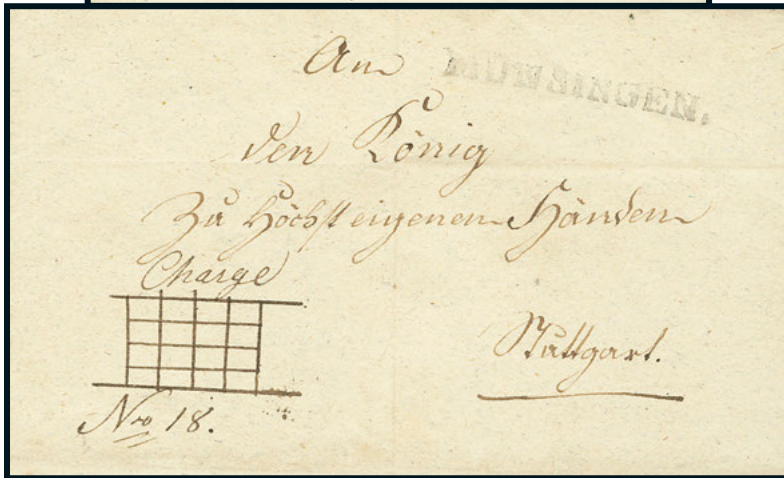 An
MÜNSINGEN.
den König
Zu Höchst eigenen Händen
Charge
Stuttgart.
Nro 18.